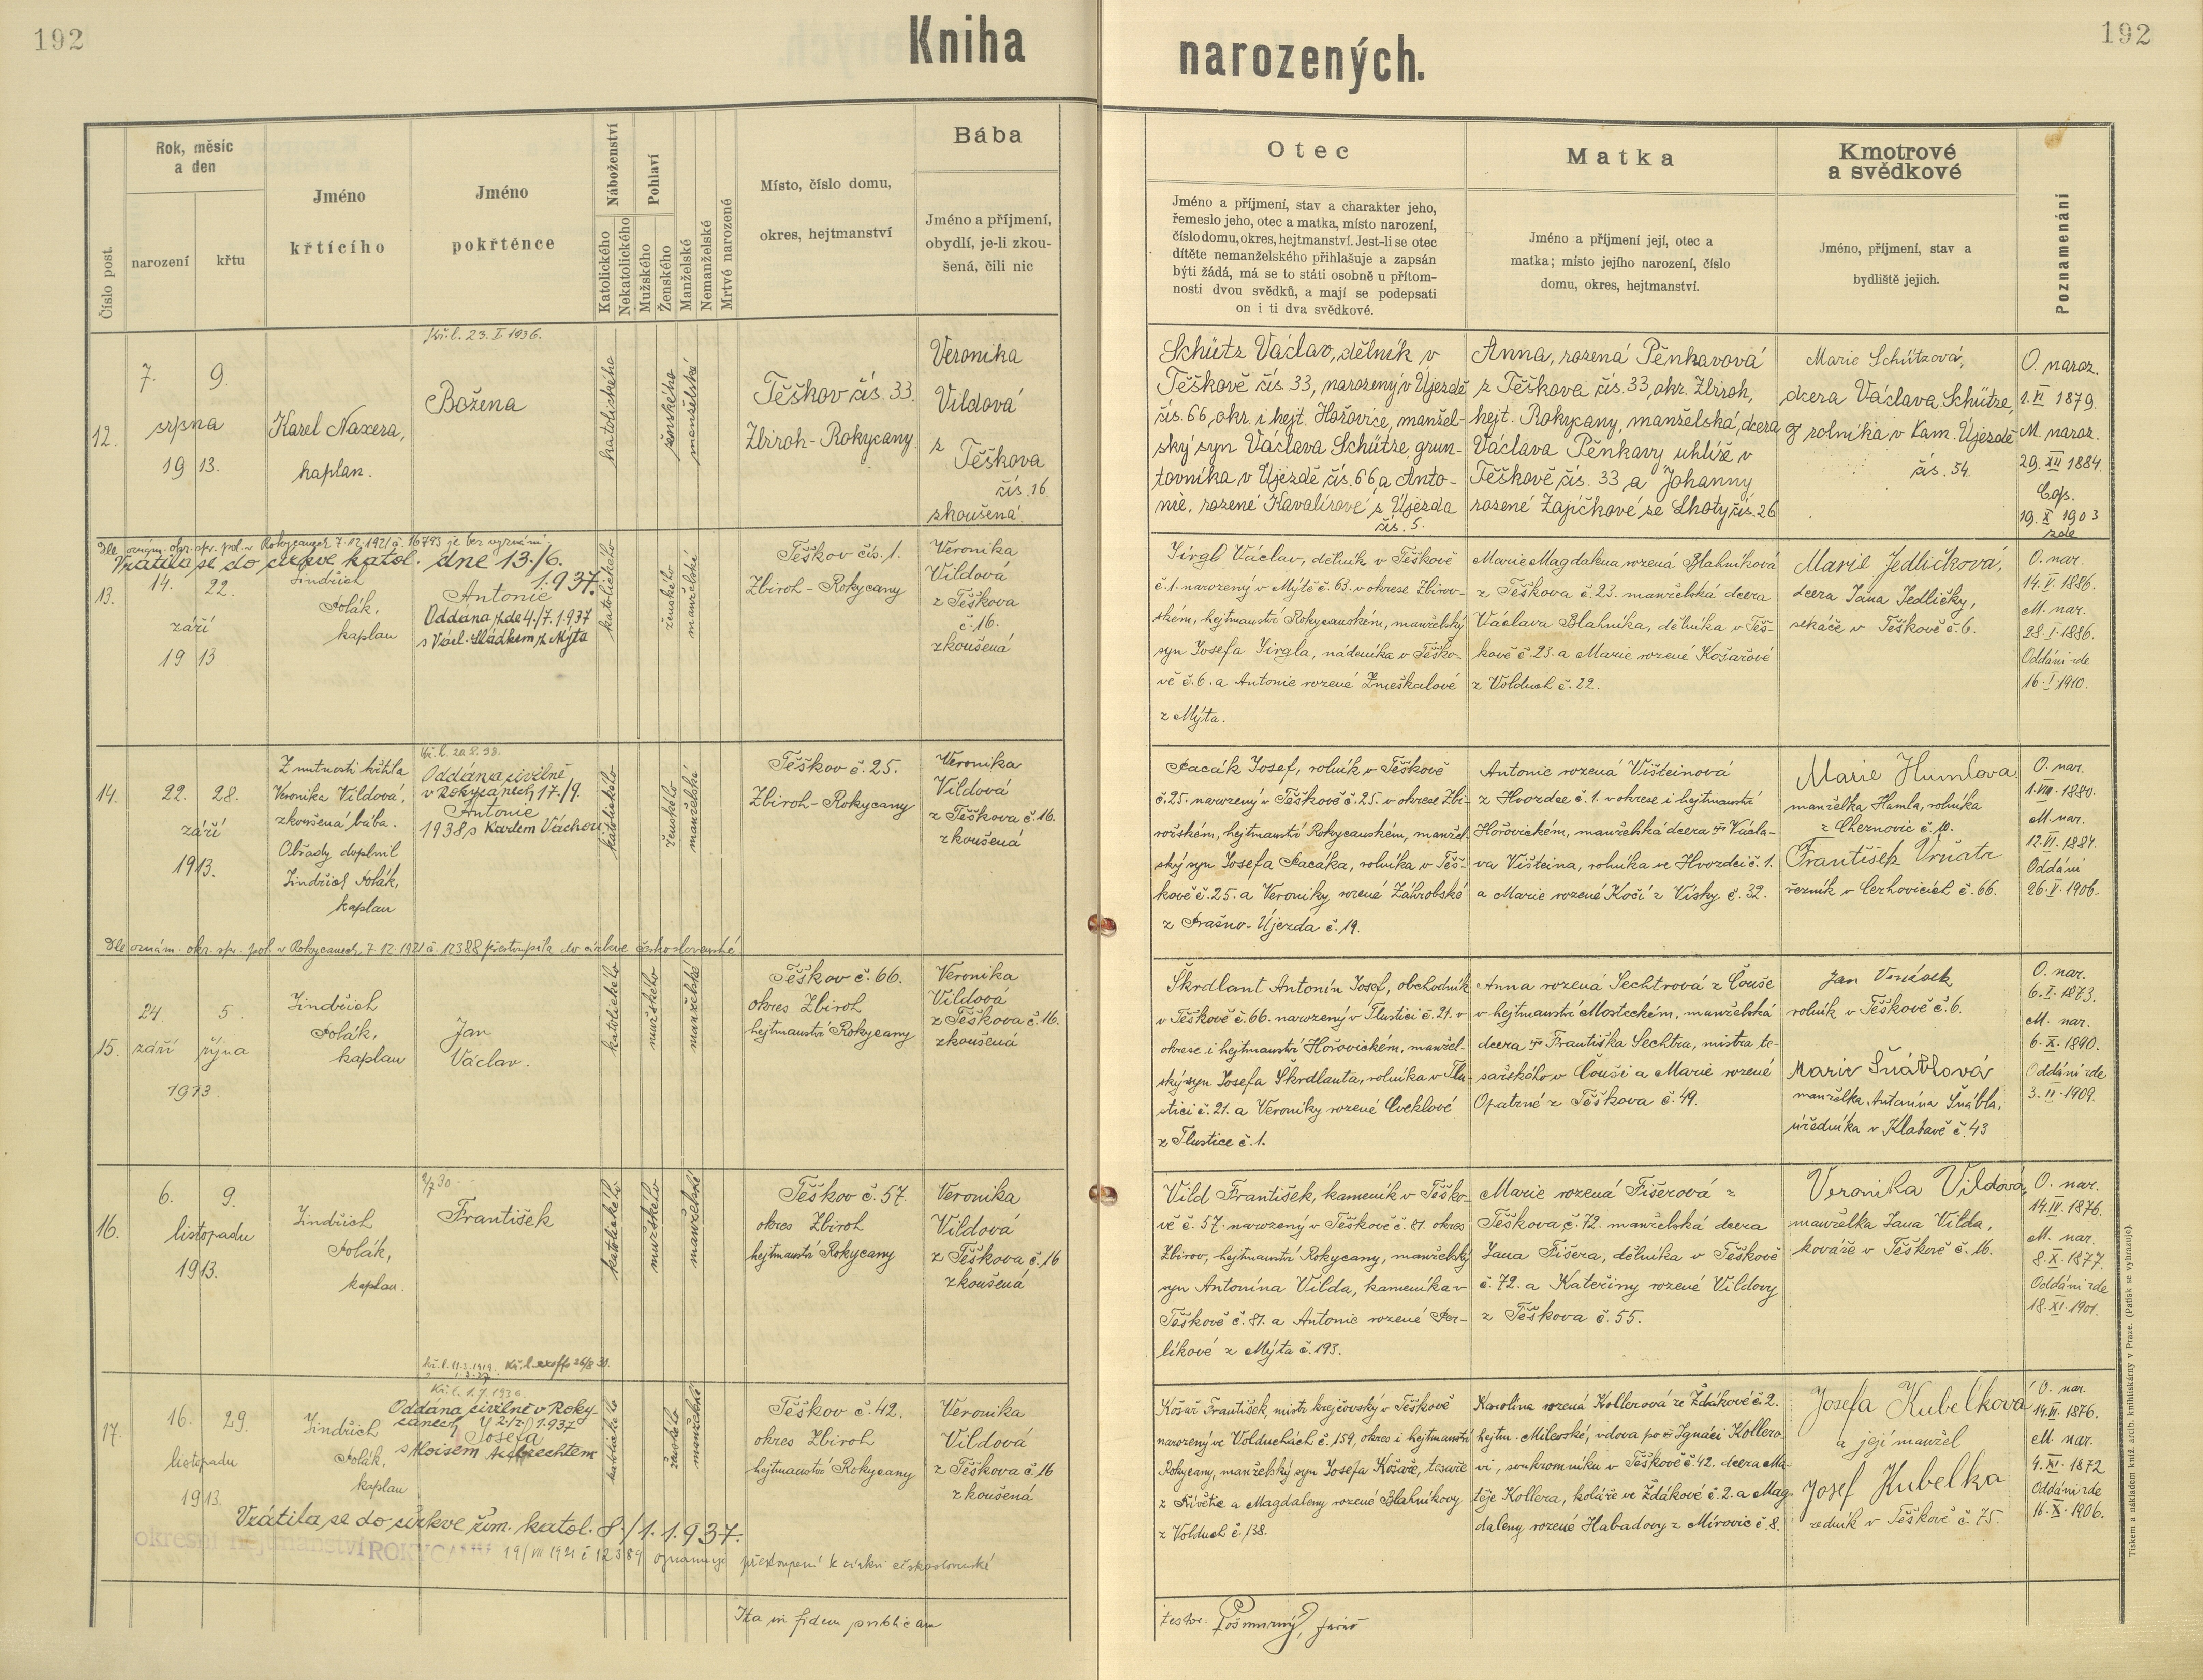 192
Kniha
narozených.
192
Číslo post.
Rok, měsíc
a den
narození
křtu
Jméno
křtícího
Jméno
pokřtěnce
Náboženství
Katolického
Nekatolického
Pohlaví
Mužského
Ženského
Manželské
Nemanželské
Mrtvě narozené
Místo, číslo domu,
okres, hejtmanství
Bába
Jméno a příjmení,
obydlí, je-li zkou-
šená, čili nic
Otec
Jméno a příjmení, stav a charakter jeho,
řemeslo jeho, otec a matka, místo narození,
číslo domu, okres, hejtmanství. Jest-li se otec
dítěte nemanželského přihlašuje a zapsán
býti žádá, má se to státi osobně u přítom-
nosti dvou svědků, a mají se podepsati
on i ti dva svědkové.
Matka
Jméno a příjmení její, otec a
matka; místo jejího narození, číslo
domu, okres, hejtmanství.
Kmotrové
a svědkové
Jméno, příjmení, stav a
bydliště jejich.
Poznamenání
12.
7. 9.
srpna
19 13.
Karel Naxera,
kaplan.
Kř. l. 23. I. 1936.
Božena
katolického
ženského
manželské
Těškov čís. 33.
Zbiroh - Rokycany
Veronika
Vildová
z
Těškova
čís. 16
zkoušená.
Schütz Václav, dělník v
Těškově čís 33, narozený v Újezdě
čís. 66, okr. i hejt. Hořovice, manžel-
ský syn Václava Schütze, grun-
tovníka v Újezdě čís. 66, a Anto-
nie, rozené Kavalírové z Újezda
čís. 5.
Anna, rozená Pěnkavová
z Těškova čís. 33, okr. Zbiroh,
hejt. Rokycany, manželská dcera
Václava Pěnkavy uhlíře v
Těškově čís. 33 a Johanny
rozené Zajíčkové ze Lhoty čís. 26
Marie Schützová,
dcera Václava Schütze,
rolníka v Kam. Újezdě
čís. 54.
O. naroz.
1. VI 1879.
M. naroz.
29. XII 1884.
Cop.
19. X 1903
zde
Dle oznám. okr. spr. pol. v Rokycanech 7.12.1921 č. 16793 je bez vyznání.
Vrátila se do církve katol. dne 13./6.
1.937.
13.
14. 22.
září
19 13
Jindřich
Polák,
kaplan
Antonie
Oddána zde 4./7. 1.937
s Václ. Sládkem, z Mýta
katolického
ženského
manželské
Těškov čís. 1.
Zbiroh - Rokycany
Veronika
Vildová
z Těškova
č. 16.
zkoušená
Jirgl Václav, dělník v Těškově
č. 1. narozený v Mýtě č. 63. v okrese Zbirov-
ském, hejtmanství Rokycanském, manželský
syn Josefa Jirgla, nádeníka v Těško-
vě č. 6. a Antonie rozené Zmeškalové
z Mýta.
Marie Magdalena rozená Blahníková
z Těškova č. 23. manželská dcera
Václava Blahníka, dělníka v Těš-
kově č. 23. a Marie rozené Košařové
z Volduch č. 22.
Marie Jedličková,
dcera Jana Jedličky,
sekáče v Těškově č. 6.
O. nar.
14. V. 1886.
M. nar.
28. I. 1886.
Oddáni zde
16. I 1910.
14.
22. 28.
září
1913.
Z nutnosti křtila
Veronika Vildová,
zkoušená bába.
Obřady doplnil
Jindřich Polák,
kaplan
Oddána civilně
v Rokycanech 17./9.
Antonie
1938 s Karlem Váchou.
katolického
ženského
manželské
Těškov č. 25.
Zbiroh - Rokycany
Veronika
Vildová
z Těškova č 16.
zkoušená
Pacák Josef, rolník v Těškově
č. 25. narozený v Těškově č. 25. v okrese Zbi-
rožském, hejtmanství Rokycanském, manžel-
ský syn Josefa Pacáka, rolníka v Těš-
kově č. 25. a Veroniky rozené Záhrobské
z Prašno-Újezda č. 19.
Antonie rozená Višteinová
z Hvozdce č. 1. v okrese i hejtmanství
Hořovickém, manželská dcera Václa-
va Višteina, rolníka ve Hvozdci č. 1.
a Marie rozené Kočí z Vísky č. 32.
Marie Humlova
manželka Hamla, rolníka
z Chernovic č. 10.
František Vršata
řezník v Cerhovicích č. 66.
O. nar.
1. VIII. 1880.
M. nar.
12. VI. 1884.
Oddáni
26. V. 1906.
Dle oznám. okr. spr. pol. v Rokycanech 7.12.1921 č. 12388 přestoupila do církve československé
15.
24. 5.
září října
1913.
Jindřich
Polák,
kaplan
Jan
Václav.
katolického
mužského
manželské
Těškov č. 66.
okres Zbiroh
hejtmanství Rokycany
Veronika
Vildová
z Těškova č. 16.
zkoušená
Škrdlant Antonín Josef, obchodník
v Těškově č. 66. narozený v Tlustici č. 21. v
okrese i hejtmanství Hořovickém, manžel-
ský syn Josefa Škrdlanta, rolníka v Tlu-
stici č. 21. a Veroniky rozené Cveklové
z Tlustice č. 1.
Anna rozená Sechtrová z Čouše
v hejtmanství Mosteckém, manželská
dcera Františka Sechtra, mistra te-
sařského v Čouši a Marie rozené
Opatrné z Těškova č. 49.
Jan
rolník v Těškově č. 6.
Marie Šnáblová
manželka Antonína Šnábla,
úředníka v Klabavě č. 43
O. nar.
6. I. 1873.
M. nar.
6. X. 1890.
Oddáni zde
3. II. 1909.
16.
6. 9.
listopadu
1913.
Jindřich
Polák,
kaplan.
František
katolického
mužského
manželské
Těškov č. 57.
okres Zbiroh
hejtmanství Rokycany
Veronika
Vildová
z Těškova č. 16
zkoušená
Vild František, kameník v Těško-
vě č. 57. narozený v Těškově č. 81. okres
Zbirov, hejtmanství Rokycany, manželský
syn Antonína Vilda, kameníka v
Těškově č. 81. a Antonie rozené Per-
líkové z Mýta č. 193.
Marie rozená Fišerová z
Těškova č. 72. manželská dcera
Jana Fišera, dělníka v Těškově
č. 72. a Kateřiny rozené Vildovy
z Těškova č. 55.
Veronika Vildová,
manželka Jana Vilda,
kováře v Těškově č. 16.
O. nar.
14. IV. 1876.
M. nar.
8. X. 1877.
Oddáni zde
18. XI. 1901.
17.
16. 29.
listopadu
1913.
Jindřich
Polák,
kaplan
Kř. l. 1. 7. 1936.
Oddána civilně v Roky-
canech 1.937
Josefa
s Aloisem
katolického
ženského
manželské
Těškov č. 42.
okres Zbiroh
hejtmanství Rokycany
Veronika
Vildová
z Těškova č 16
zkoušená
Košař František, mistr krejčovský v Těškově
narozený ve Volduchách č. 159, okres i hejtmanství
Rokycany, manželský syn Josefa Košaře, tesaře
z Přívětic a Magdaleny rozené Blahníkovy
z Volduch č. 138.
Karolína rozená Kollerová ze Ždákově č. 2.
hejtm. Milevské, vdova po Ignáci Kollero-
vi, soukromníku v Těškově č. 42. dcera Ma-
těje Kollera, koláře ve Ždákově č. 2. a Mag-
daleny rozené Habadovy z Mírovic č. 8.
Josefa Kubelková
a její manžel
Josef Kubelka
ředník v Těškově č. 75.
O. nar.
14. III. 1876.
M. nar.
4. XI. 1872
Oddáni zde
16. X. 1906.
Vrátila se do církve řím. katol. 8./1. 1.937.
okresní hejtmanství ROKYCANY 19/VII 1921 č 12384 oznamuje přestoupení k církvi československé
Ita in fidem publicam
testor. farář
Tiskem a nákladem kniž. arch. knihtiskárny v Praze. (Patisk se vyhrazuje).